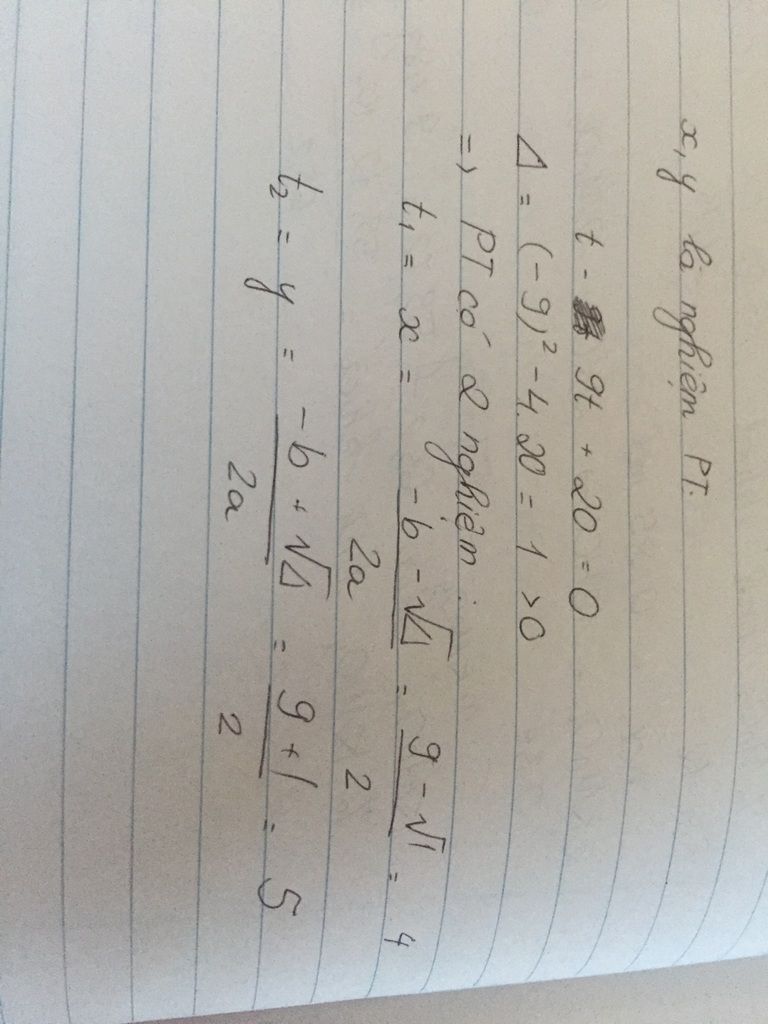 x, y là nghiệm PT.
t - 9t + 20 = 0
Δ = (-9)² - 4.20 = 1 > 0
=> PT có 2 nghiệm :
t₁ = x = (-b - √Δ)/2a = (9 - √1)/2 = 4
t₂ = y = (-b + √Δ)/2a = (9 + 1)/2 = 5